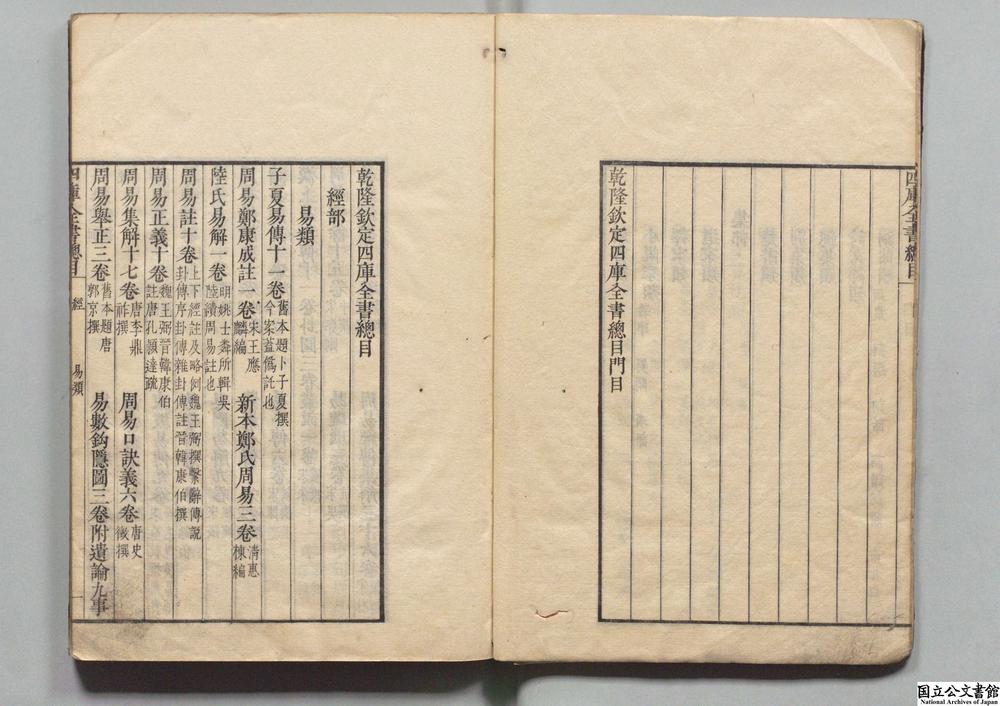 四庫全書總目
乾隆欽定四庫全書總目門目
乾隆欽定四庫全書總目
經部
易類
子夏易傳十一卷 舊本題卜子夏撰今案蓋僞託也
周易鄭康成註一卷 宋王應麟編 新本鄭氏周易三卷 清惠棟編
陸氏易解一卷 明姚士粦所輯吳陸績周易註也
周易註十卷 上下經註及略例魏王弼撰繫辭傳說卦傳序卦傳雜卦傳註晉韓康伯撰
周易正義十卷 魏王弼晉韓康伯註唐孔穎達疏
周易集解十七卷 唐李鼎祚撰 周易口訣義六卷 唐史徵撰
周易舉正三卷 舊本題唐郭京撰 易數鈎隱圖三卷附遺論九事
四庫全書總目 經 易類 一
国立公文書館
National Archives of Japan